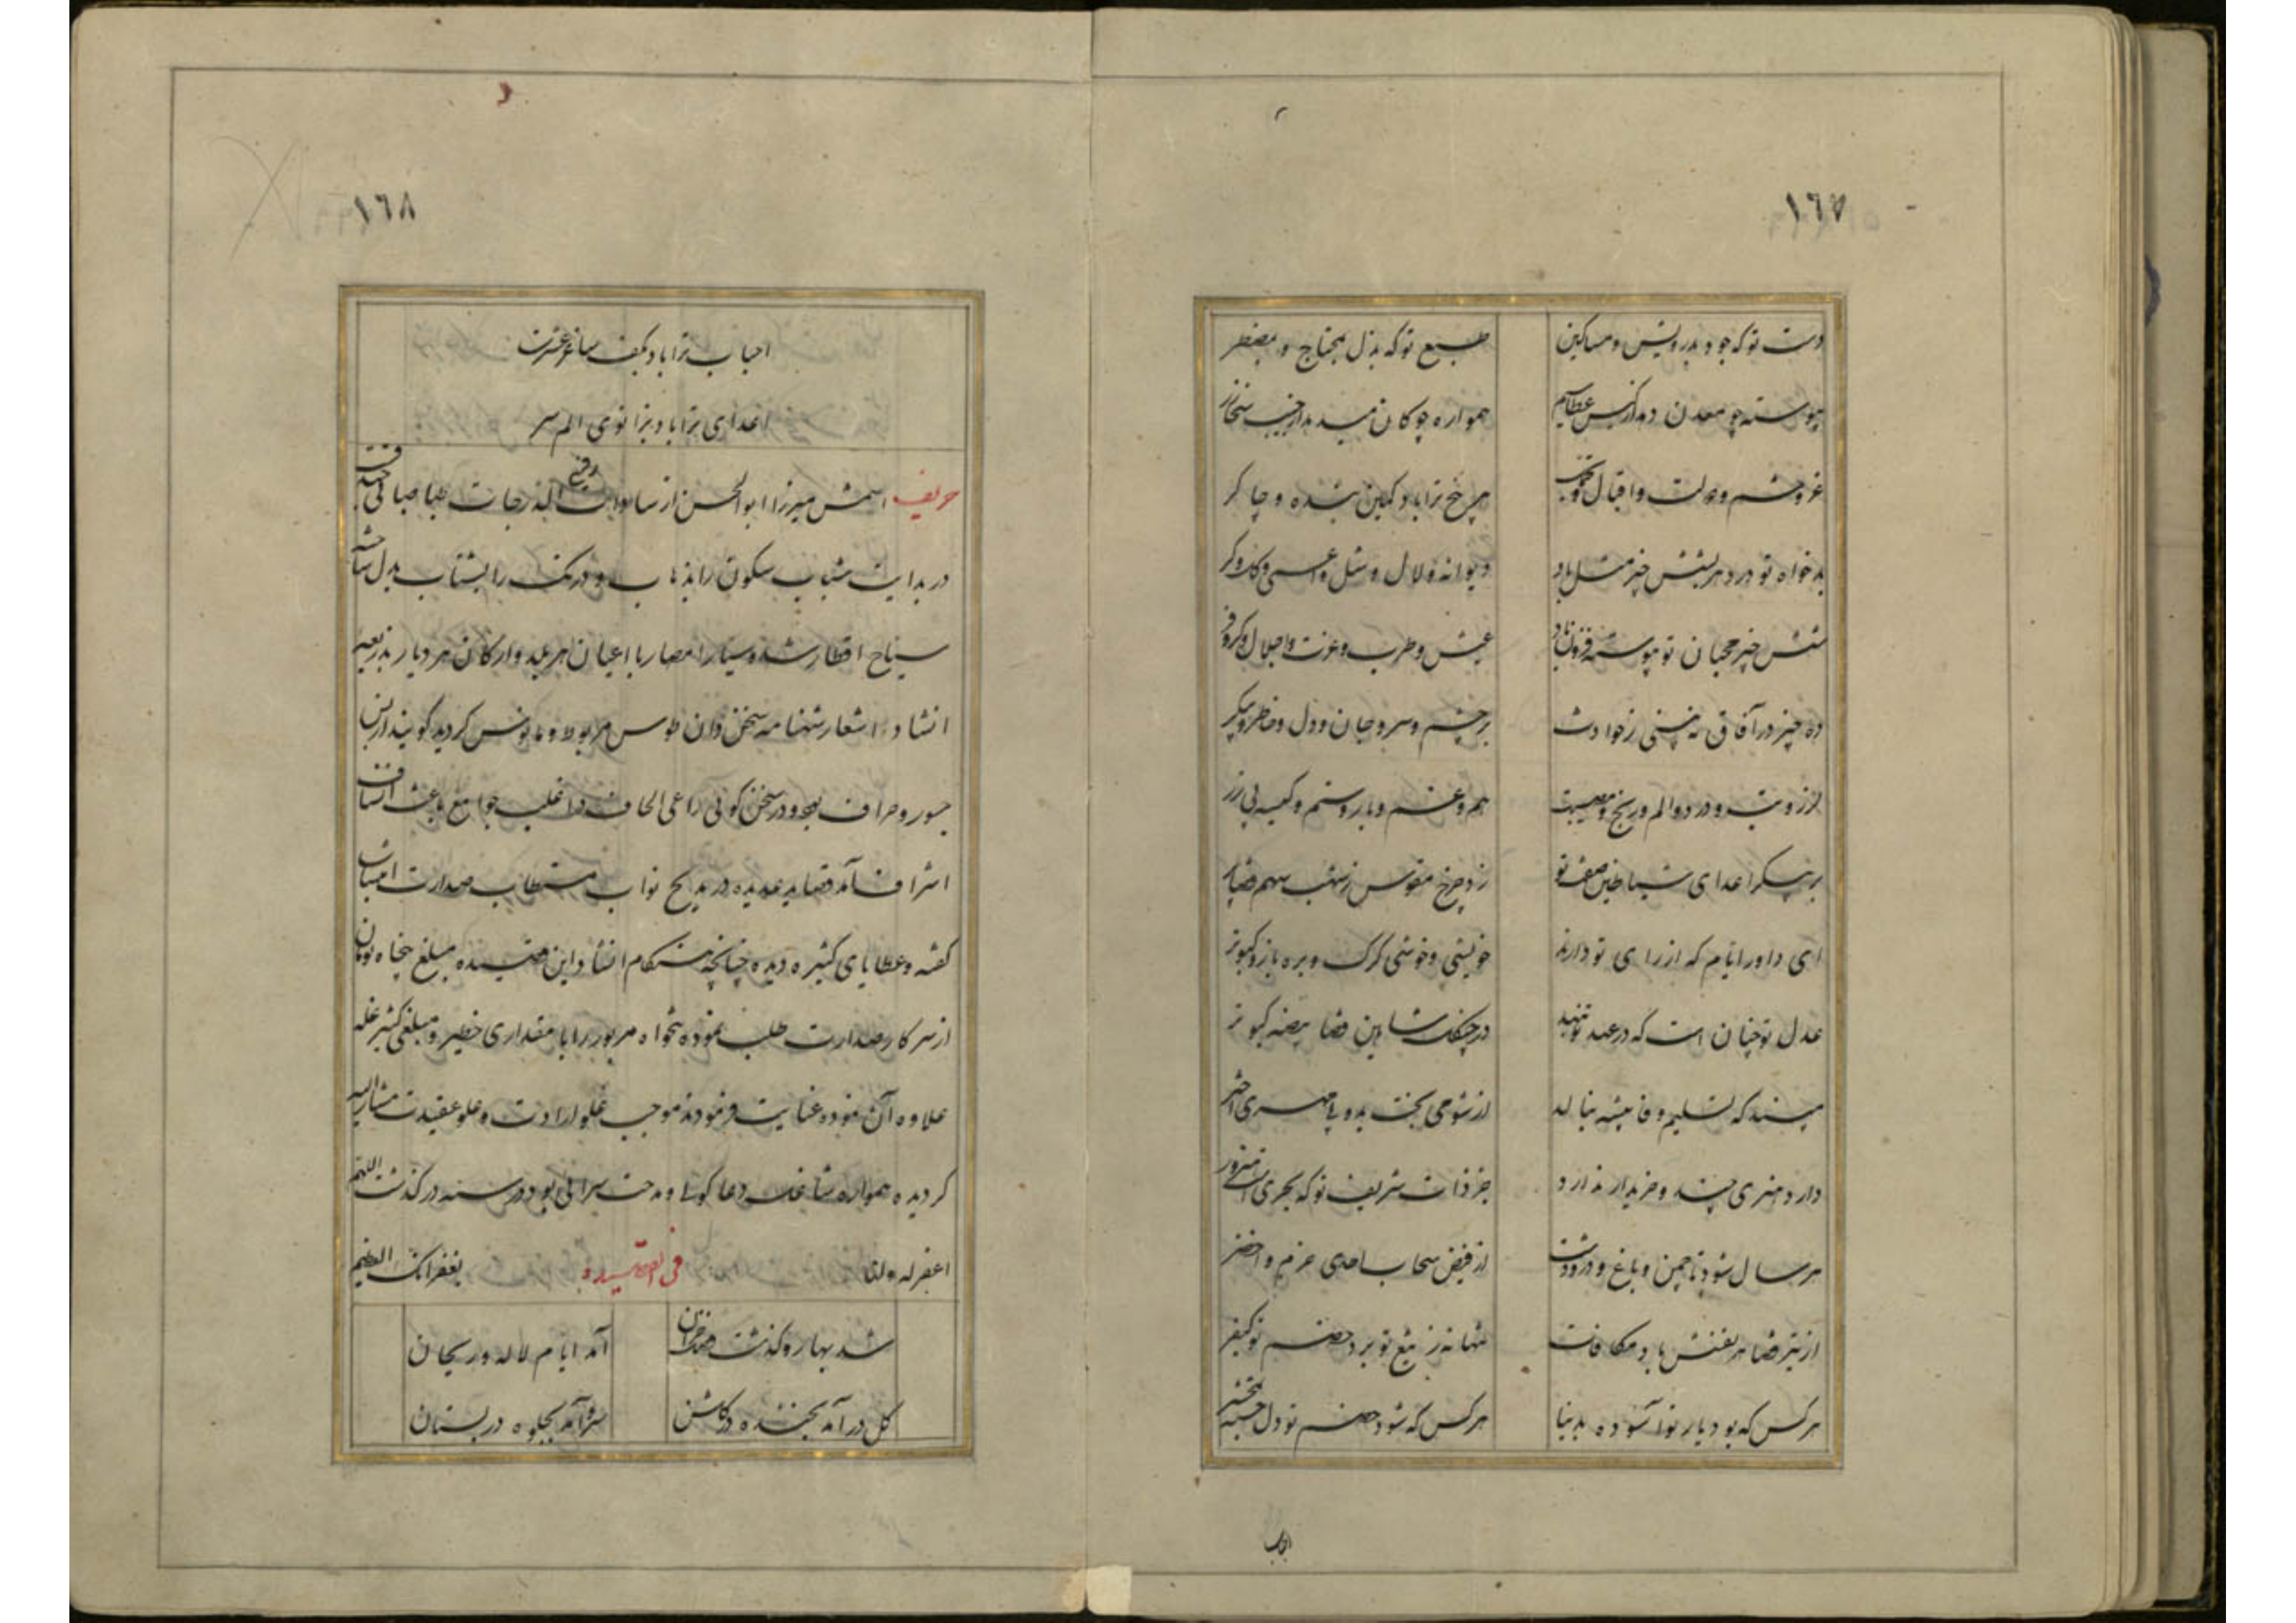 ١٦٧
دست تو که جود بدرویش و مساکین طبع تو که بذل بمحتاج و بمضطر
پیوسته چو معدن دهد از کیس عطا سیم همواره چو کان میدهد از جیب سخا زر
عز و حشم و دولت و اقبال و چرخ ترا باد کمین بنده و چاکر
بدخواه تو در دهر بشش چیز مثل باد دیوانه و لال و شل و اعمی و کل و کر
شش چیز محبان تو پیوسته فزون باد عیش و طرب و عزت و اجلال و کر و فر
ده چیز در آفاق نه بینی ز حوادث بر چشم و سر و جان و دل و خاطر و پیکر
لرز و تب و درد و الم و رنج و مصیبت هم و غم و بار و ستم و کیسه بی زر
بر پیکر اعدای شیاطین صفت تو زد چرخ مقوس ز شهب سهم
ای داور ایام که از رای تو دارند خویشی و خوشی گرگ و بره باز و کبوتر
عدل تو چنان است که در عهد تو ننهد در چنگل شاهین قضا بیضه کبوتر
مپسند که تسلیم وفا پیشه بنالد از شومی بخت بد و بی مهری اختر
دارد هنری چند و خریدار ندارد جز ذات شریف تو که بحری است
هر سال شود تا چمن و باغ و در و دشت از فیض سحاب احدی خرم و اخضر
از تیر قضا هر نفسش باد مکافات تنها نه ز تیغ تو برد خصم تو کیفر
هر کس که بود یار تو آسوده بدنیا هر کس که شود خصم تو دل خسته بمحشر
احباب
١٦٨
احباب ترا باد بکف ساغر عشرت
اعدای ترا باد بزانوی الم سر
حریف اسمش میرزا ابوالحسن از سادات رفیع الدرجات طباطبائی
در بدایت شباب سکون را بذهاب و درنگ را بشتاب بدل ساخته
سیاح اقطار شده و سیار امصار با اعیان هر بلد و ارکان هر دیار بذریعه
انشاد اشعار شهنامه سخن دان طوس مربوط و مانوس گردید گویند از بس
جسور و حراف بود و در سخن گوئی داعی الحاف در اغلب جوامع باعث
اشراف آمد قصاید عدیده در مدیح نواب مستطاب صدارت
گفته و عطایای کثیره دیده چنانچه هنگام انشاد این قصیده مبلغ پنجاه تومان
از سرکار صدارت طلب نموده تنخواه مزبور را با مقداری خطیر و مبلغی کثیر غله
علاوه آن نموده عنایت فرمودند موجب غلو ارادت و علو عقیدت مشارالیه
گردیده همواره شاغل دعا گوئی و مدحت سرائی بود در سنه درگذشت اللهم
اغفر له ولنا فی القصیده بغفرانک العظیم
شد بهار و گذشت فصل خزان آمد ایام لاله و ریحان
گل درآمد بخنده در گلشن سرو آمد بجلوه در بستان